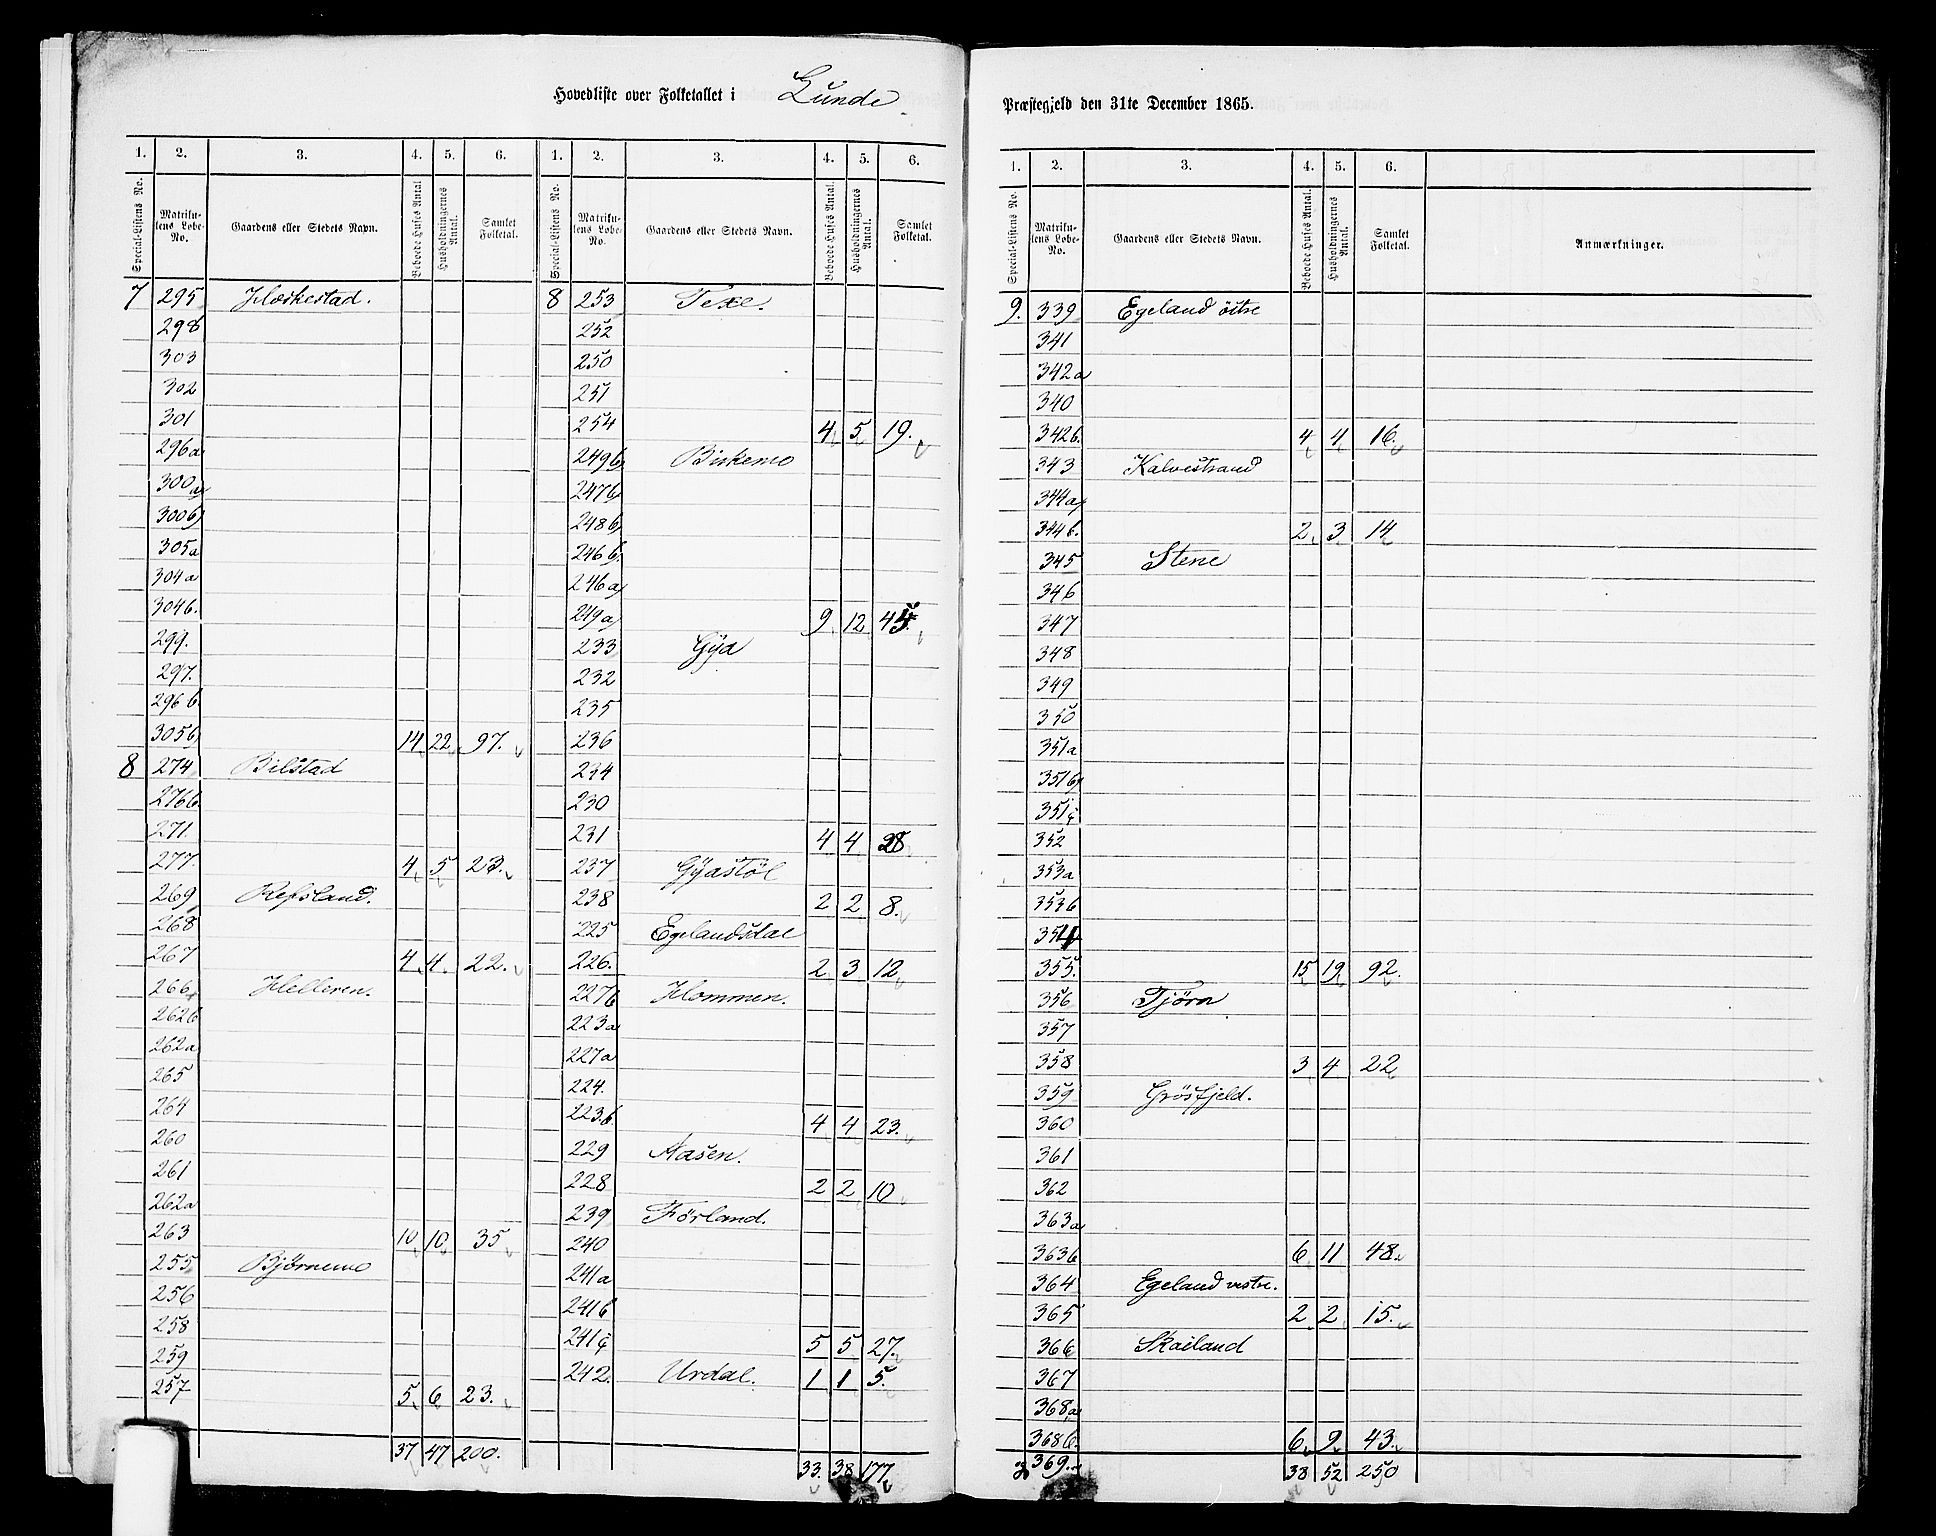 Hovedliste over Folketallet i Lunde
Præstegjeld den 31te December 1865.
1. 2. 3. 4. 5. 6. 1. 2. 3. 4. 5. 6.
Special-Listens No. Matrikulens Løbe-No. Gaardens eller Stedets Navn. Beboede Huses Antal. Husholdningernes Antal. Samlet Folketal. Special-Listens No. Matrikulens Løbe-No. Gaardens eller Stedets Navn. Beboede Huses Antal. Husholdningernes Antal. Samlet Folketal.
7 295 Hæskestad.
298
303
302
301
296a
300a
300b
305a
304a
304b.
299.
297.
296b.
305b 14 22 97.
8 274 Bilstad
276b
271.
277. 4 5 23.
269 Refsland.
268
267 4 4 22.
266 Helleren.
262b
262a
265
264
260
261
262a
263 10 10 35
255 Bjørnemo
256
258
259
257 5 6 23.
37 47 200.
8 253 Texe.
252
250
251
254 4 5 19.
249b Birkemo
247b
248b
246b
246a
249a 9 12 45.
233 Gya
232
235
236
234
230
231 4 4 28.
237 Gyastøl
238 2 2 8.
225 Egelandsdal
226. 2 3 12
227b Hommen.
223a
227a
224.
223b 4 4 23.
229 Aasen.
228 2 2 10
239 Førland.
240
241a
241b
241c 5 5 27.
242. Urdal. 1 1 5.
33. 38 177.
1. 2. 3. 4. 5. 6.
Special-Listens No. Matrikulens Løbe-No. Gaardens eller Stedets Navn. Beboede Huses Antal. Husholdningernes Antal. Samlet Folketal. Anmærkninger.
9. 339 Egeland östre
341
342a
340
342b. 4 4 16.
343 Kalvestrand
344a
344b. 2 3 14
345 Stene
346
347
348
349
350
351a
351b
351c
352
353a
353b
354
355. 15 19 92.
356 Tjörn
357
358 3 4 22
359 Grösfjeld.
360
361
362
363a
363b 6 11 48.
364 Egeland vestre.
365 2 2 15.
366 Skailand
367
368a
368b. 6 9 43.
369. 38 52 250